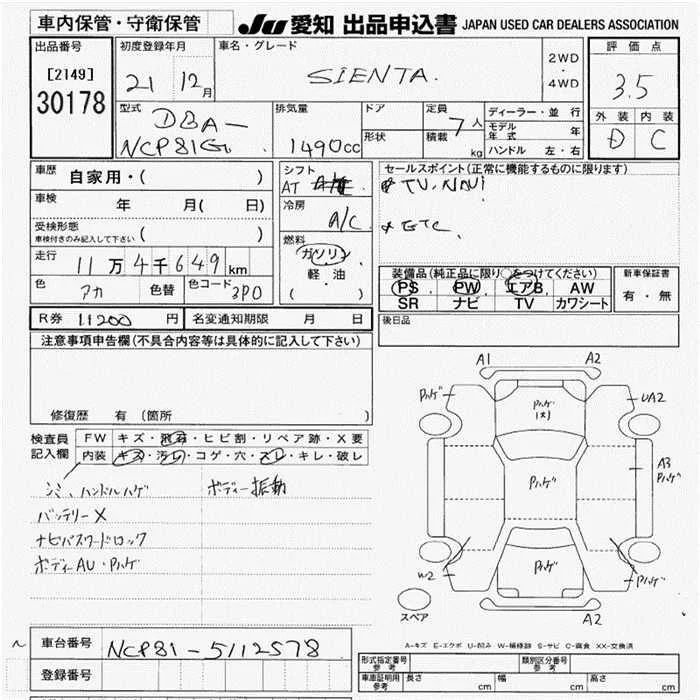 車内保管・守衛保管
JU 愛知 出品申込書 JAPAN USED CAR DEALERS ASSOCIATION
出品番号
[2149]
30178
初度登録年月
21 12月
車名・グレード
SIENTA.
2WD
・
4WD
評価点
3.5
外装 内装
D C
型式
DBA-
NCP81G
排気量
1490cc
ドア
形状
定員
7人
積載
kg
ディーラー・並行
モデル年式 年
ハンドル 左・右
車歴
自家用・( )
車検
年 月( 日)
受検形態
車検付きのみ記入して下さい ( )
走行
11万4千649km
色
アカ
色替
色コード
3P0
シフト
AT
冷房
A/C
燃料
ガソリン
軽油
(・ )
セールスポイント(正常に機能するものに限ります)
TV.NAVi
ETC
装備品(純正品に限り○をつけてください)
PS PW エアB AW
SR ナビ TV カワシート
新車保証書
有・無
後日品
R券 11200 円
名変通知期限 月 日
注意事項申告欄(不具合内容等は具体的に記入して下さい)
修復歴 有(箇所 )
検査員
記入欄
FW キズ・飛石・ヒビ割・リペア跡・X要
内装 キズ・汚レ・コゲ・穴・スレ・キレ・破レ
シミ、ハンドルハゲ
ボディー振動
バッテリーX
ナビパスワードロック
ボディーAU・Pハゲ
A1
A2
Pハゲ
Pハゲ
(大)
UA2
Pハゲ
A3
Pハゲ
W2
Pハゲ
Pハゲ
スペア
A2
A-キズ E-エクボ U-凹み W-補修跡 S-サビ C-腐食 XX-交換済
車台番号
NCP81-5112578
登録番号
形式指定番号
参考
類別区分番号
参考
車庫証明用
参考
長さ cm
幅 cm
高さ cm